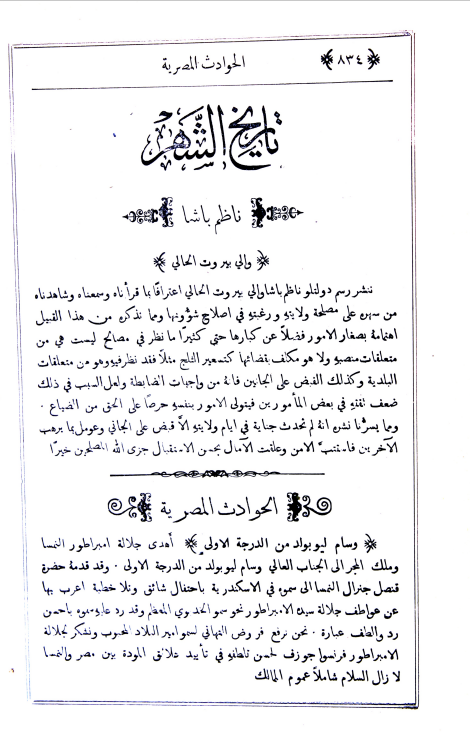 ﴿ ٨٣٤ ﴾ الحوادث المصرية
تاريخ الشهر
ناظم باشا
﴿ والي بيروت الحالي ﴾
ننشر رسم دولتلو ناظم باشا والي بيروت الحالي اعترافًا بما قرأناه وسمعناه وشاهدناه
من سهره على مصلحة ولايته ورغبته في اصلاح شؤونها ومما نذكره من هذا القبيل
اهتمامه بصغار الامور فضلاً عن كبارها حتى كثيرًا ما نظر في مصالح ليست هي من
متعلقات منصبه ولا هو مكلف بقضائها كتسعير الثلج مثلاً فقد نظر فيه وهو من متعلقات
البلدية وكذلك القبض على الجانين فانه من واجبات الضابطة ولعل السبب في ذلك
ضعف ثقته في بعض المأمورين فيتولى الامور بنفسه حرصًا على الحق من الضياع ٠
ومما يسرنا نشره انه لم تحدث جناية في ايام ولايته الا قبض على الجاني وعومل بما يرهب
الآخرين فاستتب الامن وعلقت الآمال بحسن الاستقبال جزى الله المصلحين خيرًا
الحوادث المصرية
﴿ وسام ليوبولد من الدرجة الاولى ﴾ أهدى جلالة امبراطور النمسا
وملك المجر الى الجناب العالي وسام ليوبولد من الدرجة الاولى ٠ وقد قدمه حضرة
قنصل جنرال النمسا الى سموه في الاسكندرية باحتفال شائق وتلا خطبة اعرب بها
عن عواطف جلالة سيده الامبراطور نحو سمو الخديوي المعظم وقد رد عليه سموه باحسن
رد والطف عبارة ٠ نحن نرفع فروض التهاني لسمو امير البلاد المحبوب ونشكر لجلالة
الامبراطور فرنسوا جوزف لحسن تلطفه في تأييد علائق المودة بين مصر والنمسا
لا زال السلام شاملاً عموم الممالك